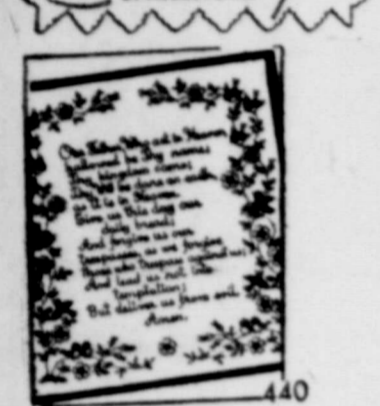 Our Father, Who art in Heaven,
hallowed be Thy name;
Thy kingdom come;
Thy will be done on earth
as it is in Heaven.
Give us this day our
daily bread;
And forgive us our
trespasses, as we forgive
those who trespass against us;
And lead us not into
temptation;
But deliver us from evil.
Amen.
440